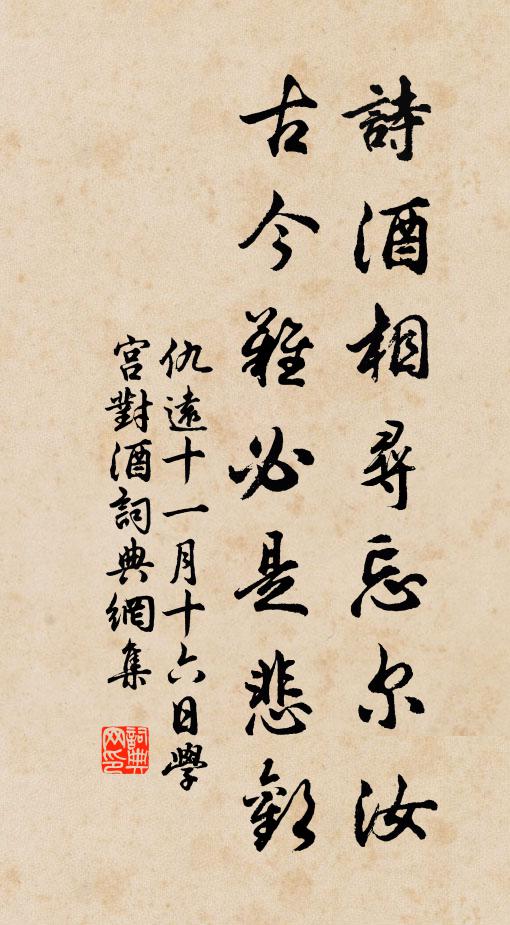 詩酒相尋忘尔汝
古今難必是悲歡
仇遠十一月十六日學
宫對酒詞典網集
詞典
网印